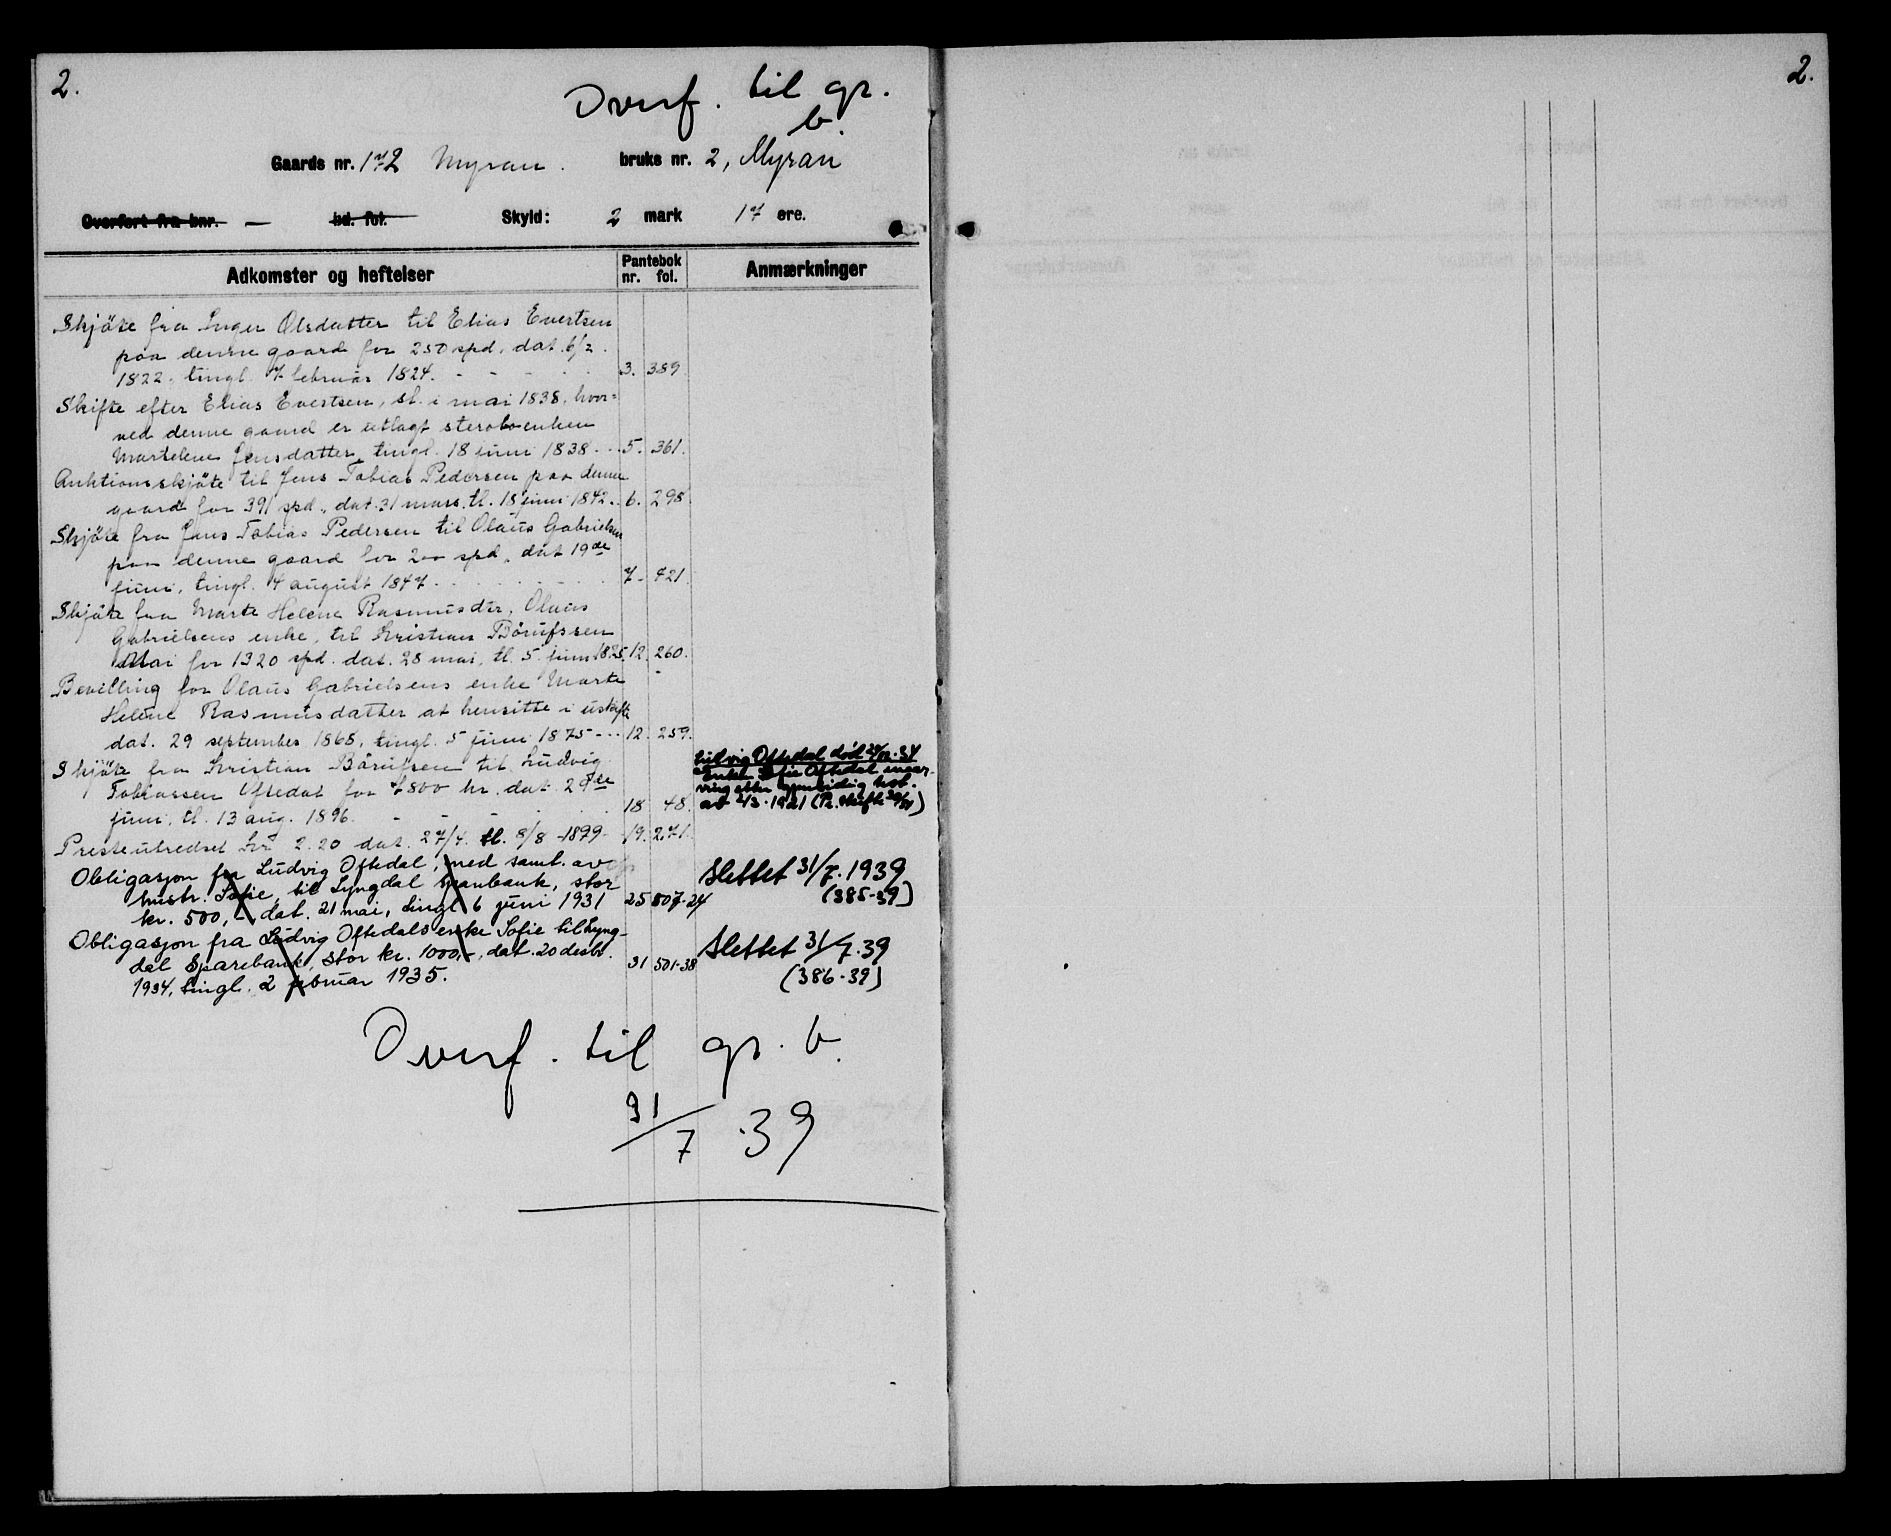 2.
Overf. til gr.
b.
Gaards nr. 172 Myran. bruks nr. 2, Myran
Overført fra bnr. — bd. fol. Skyld: 2 mark 17 øre.
Adkomster og heftelser Pantebok nr. fol. Anmærkninger
Skjöte fra Inger Olsdatter til Elias Evertsen
paa denne gaard for 250 spd. dat. 6/2.
1822, tingl. 7 februar 1824. 3. 389
Skifte efter Elias Evertsen, sl. i mai 1838, hvor-
ved denne gaard er utlagt sterboenken
Jensdatter, tingl. 18 juni 1838 5. 361.
Auktionsskjöte til Jens Tobias Pedersen paa denne
gaard for 391 spd., dat. 31 mars, tl. 18 juni 1842. 6. 298
Skjöte fra Jens Tobias Pedersen til Olaus Gabrielsen
paa denne gaard for 200 spd., dat 19de
juni, tingl. 4 august 1847. 7. 421.
Skjöte fra Marte Helene Rasmusdtr., Olaus
Gabrielsens enke, til Kristian Börufssen
for 1320 spd. dat. 28 mai, tl. 5 juni 12. 260.
Bevilling for Olaus Gabrielsens enke Marte
Helene Rasmusdatter at hensitte i uskifte
dat. 29 september 1868, tingl. 5 juni 1875 12. 259.
Skjöte fra Kristian Börufsen til Ludvig
Tobiassen Oftedal for 7800 kr. dat. 29de
juni, tl. 13 aug. 1896. 18 48.
Ludvig Oftedal död 34
Enken Sofie Oftedal
av 2/3. 1921
Presteutredsel kr. 2.20 dat. 27/4. tl. 8/8 1899. 19. 271.
Obligasjon fra Ludvig Oftedal, med samt. av
hustr. Sofie, til Lyngdal sparebank, stor
kr. 500,- dat. 21 mai, tingl. 6 juni 1931 25 807-24
Slettet 31/7. 1939
(385-39)
Obligasjon fra Ludvig Oftedals enke Sofie til Lyng-
dal Sparebank, stor kr. 1000,-, dat. 20 desbr.
1934, tingl. 2 februar 1935. 31 501-38
Slettet 31/7.39
(386-39)
Overf. til gr. b.
31/7.39
2.